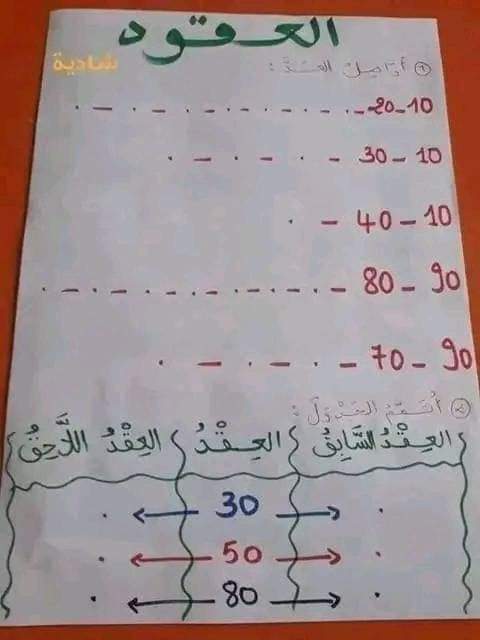 العقود
شادية
① أواصل العدّ :
10-20-.-.-.-.-.-.-.
10 - 30 - . - . - .
10 - 40 - .
90 - 80 - . - . - . - . - . - . - .
90 - 70 - . - . - .
② أُتمّم الجدول :
العِقْدُ السَّابِقُ العِقْدُ العِقْدُ اللَّاحِقُ
. ← 30 → .
. ← 50 → .
. ← 80 → .